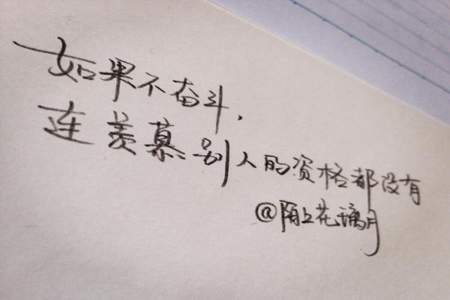 如果不奋斗,
连羡慕别人的资格都没有
@陌上花璃月